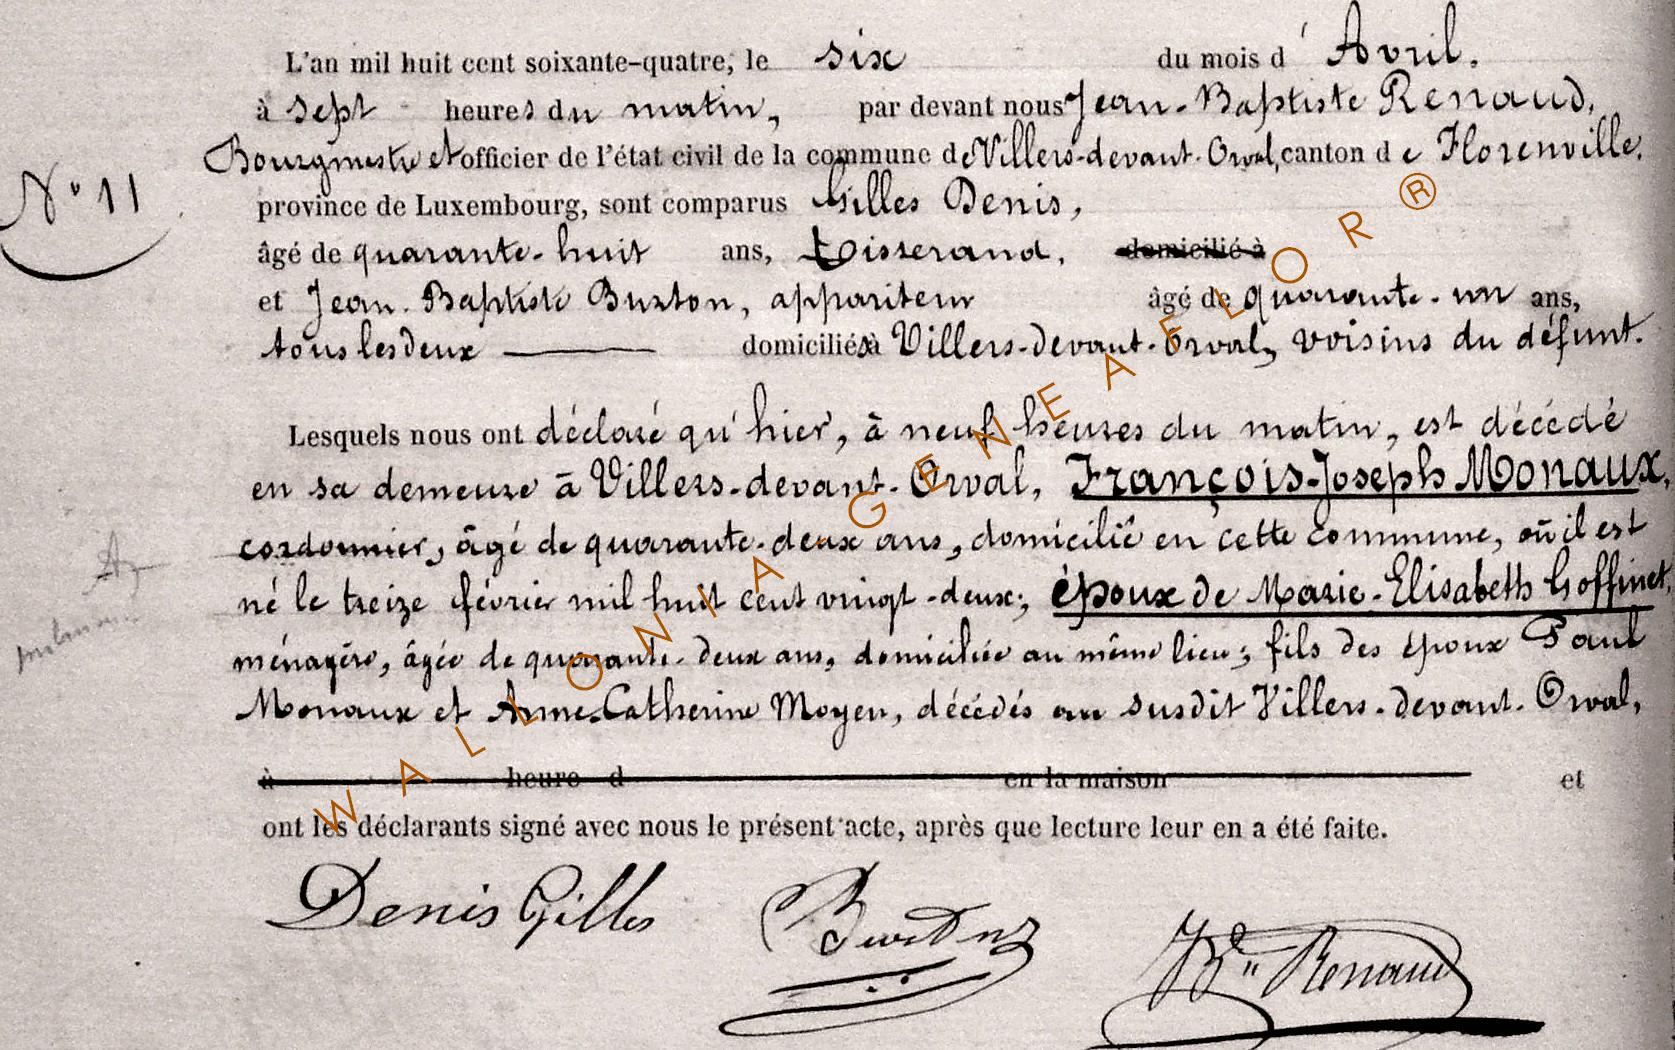 L'an mil huit cent soixante-quatre, le six du mois d'Avril.
à sept heures du matin, par devant nous Jean-Baptiste Renaud,
Bourgmestre et officier de l'état civil de la commune de Villers-devant-Orval, canton de Florenville.
N° 11
province de Luxembourg, sont comparus Gilles Denis,
âgé de quarante-huit ans, tisserand, domicilié à
et Jean-Baptiste Burton, appariteur âgé de quarante-un ans,
tous les deux domiciliés à Villers-devant-Orval, voisins du défunt.
Lesquels nous ont déclaré qu'hier, à neuf heures du matin, est décédé
en sa demeure à Villers-devant-Orval, François-Joseph Monaux,
cordonnier, âgé de quarante-deux ans, domicilié en cette commune, où il est
né le treize février mil huit cent vingt-deux; époux de Marie-Elisabeth Goffinet,
ménagère, âgée de quarante-deux ans, domiciliée au même lieu; fils des époux Paul
Monaux et Anne-Catherine Moyen, décédés au susdit Villers-devant-Orval,
à heure d en la maison et
ont les déclarants signé avec nous le présent acte, après que lecture leur en a été faite.
Denis Gilles
Burton
JBte Renaud
WALLONIA GENEAFLOR ®